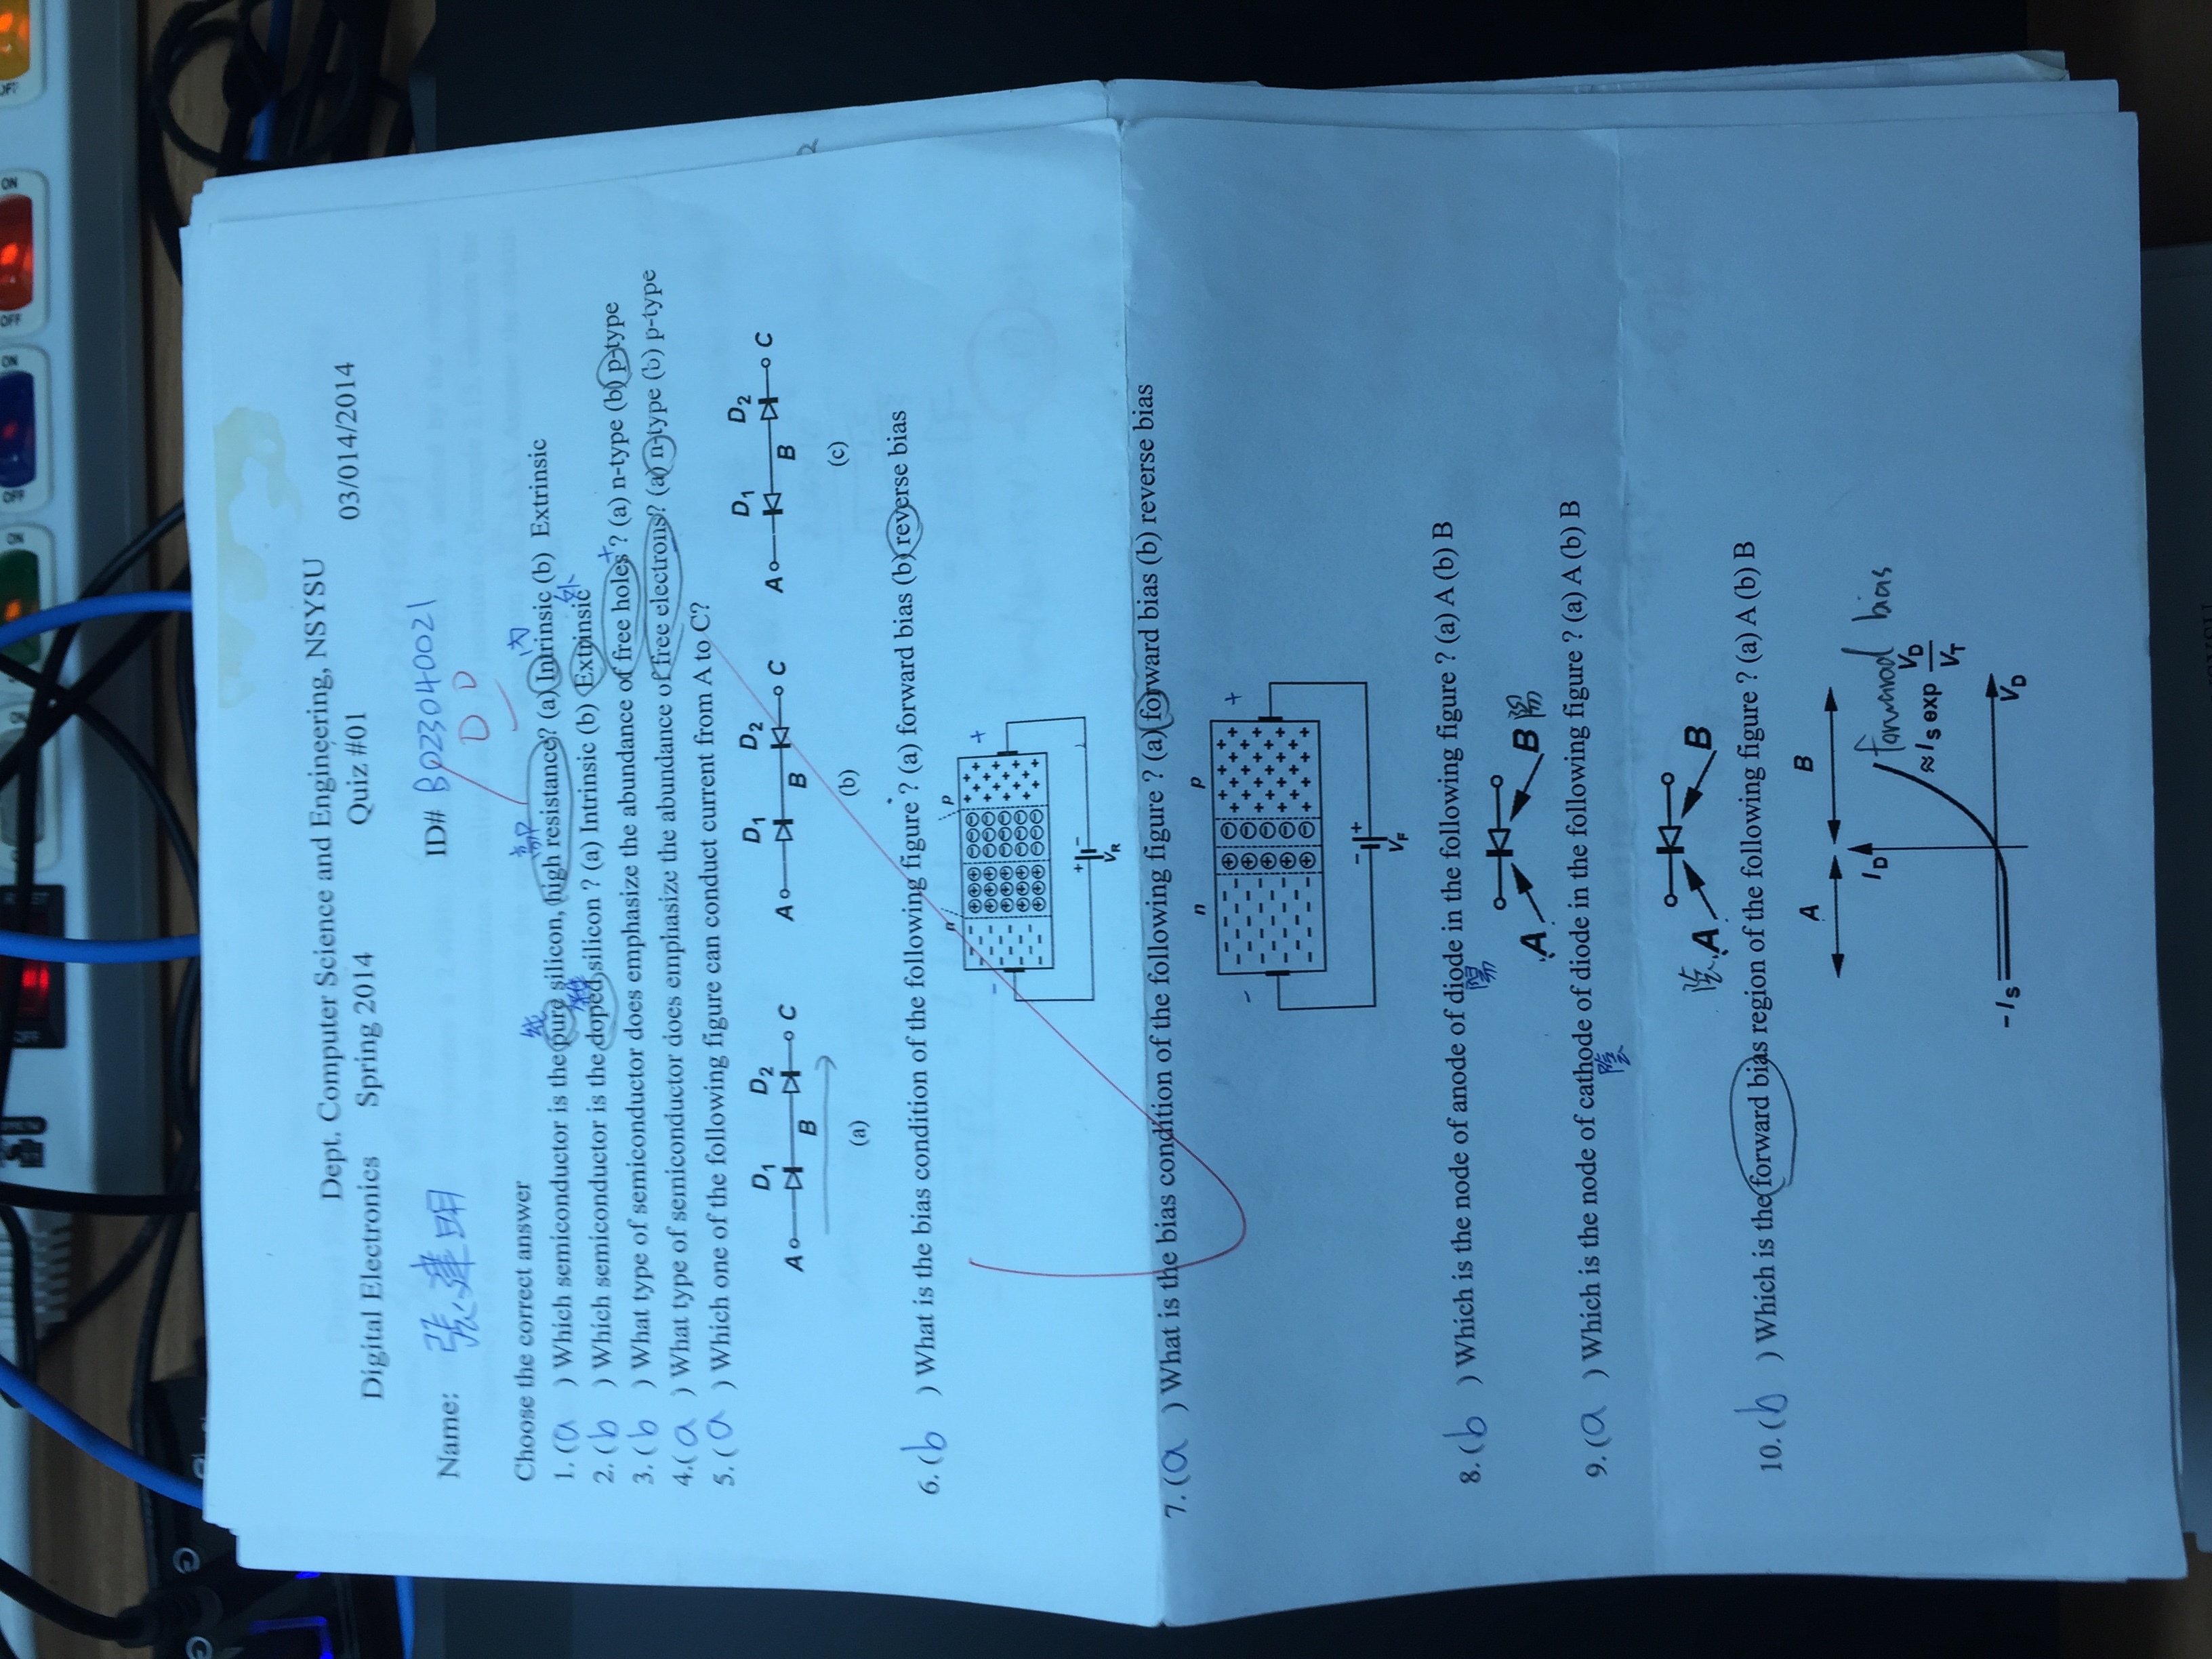 Dept. Computer Science and Engineering, NSYSU
Digital Electronics Spring 2014 Quiz #01 03/014/2014
Name: 張建明 ID# B023040021
Choose the correct answer
純 高 内
1. (a ) Which semiconductor is the pure silicon, high resistance? (a) Intrinsic (b) Extrinsic
外
2. (b ) Which semiconductor is the doped silicon ? (a) Intrinsic (b) Extrinsic
+
3. (b ) What type of semiconductor does emphasize the abundance of free holes ? (a) n-type (b) p-type
4.( a ) What type of semiconductor does emphasize the abundance of free electrons? (a) n-type (b) p-type
5. (a ) Which one of the following figure can conduct current from A to C?
D1 D2 D1 D2 D1 D2
A B C A B C A B C
(a) (b) (c)
6. (b ) What is the bias condition of the following figure ? (a) forward bias (b) reverse bias
n p
- +
+ -
VR
7. (a ) What is the bias condition of the following figure ? (a) forward bias (b) reverse bias
n p
- +
- +
VF
8. (b ) Which is the node of anode of diode in the following figure ? (a) A (b) B
陽
A B 陽
9. (a ) Which is the node of cathode of diode in the following figure ? (a) A (b) B
陰
陰 A B
10. (b ) Which is the forward bias region of the following figure ? (a) A (b) B
A B
ID forwarad bias
≈IS exp VD
VT
-IS VD